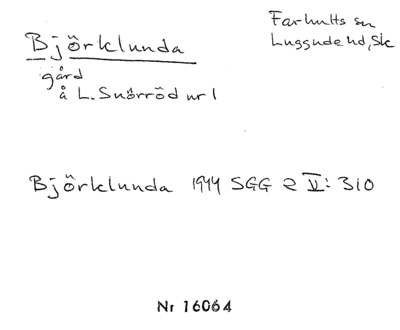 Björklunda
Farhults sn
Luggude hd, Sk
gård
å L. Snörröd nr 1
Björklunda 1944 SGG 2 V: 310
Nr 16064